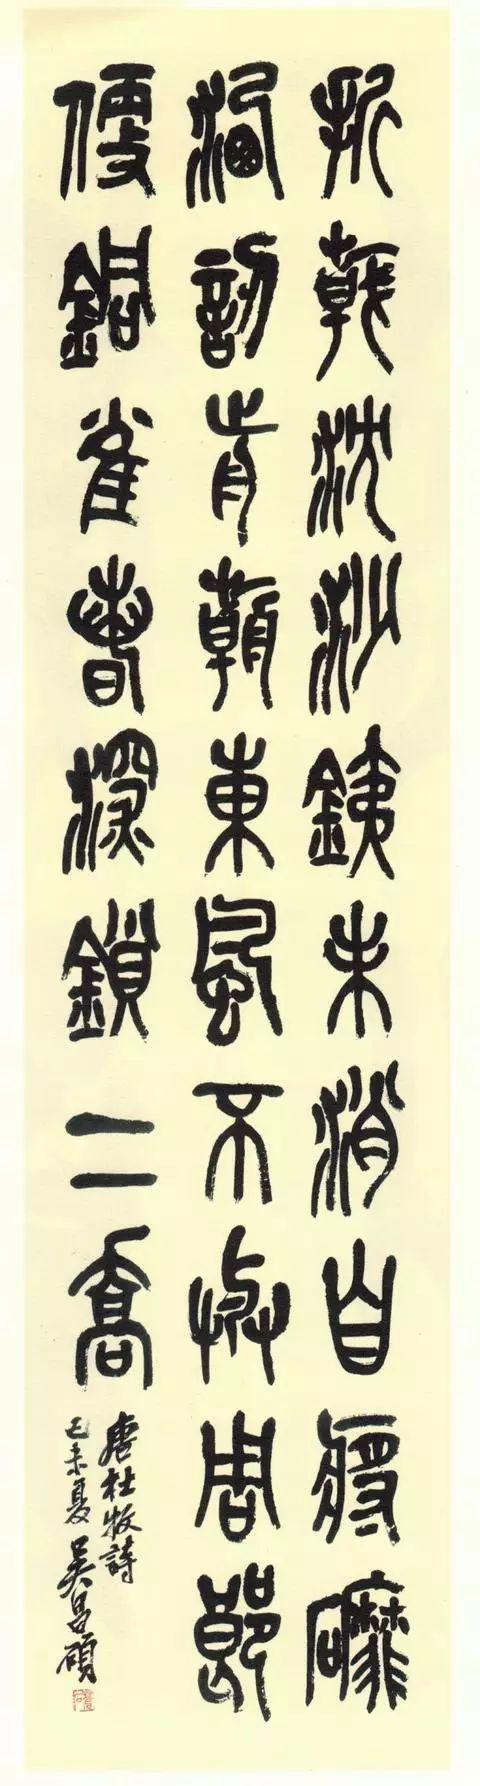 折戟沈沙銕未消自將磨
洗認前朝東風不與周郎
便銅雀春深鎖二喬
唐杜牧詩
己未夏吳昌碩